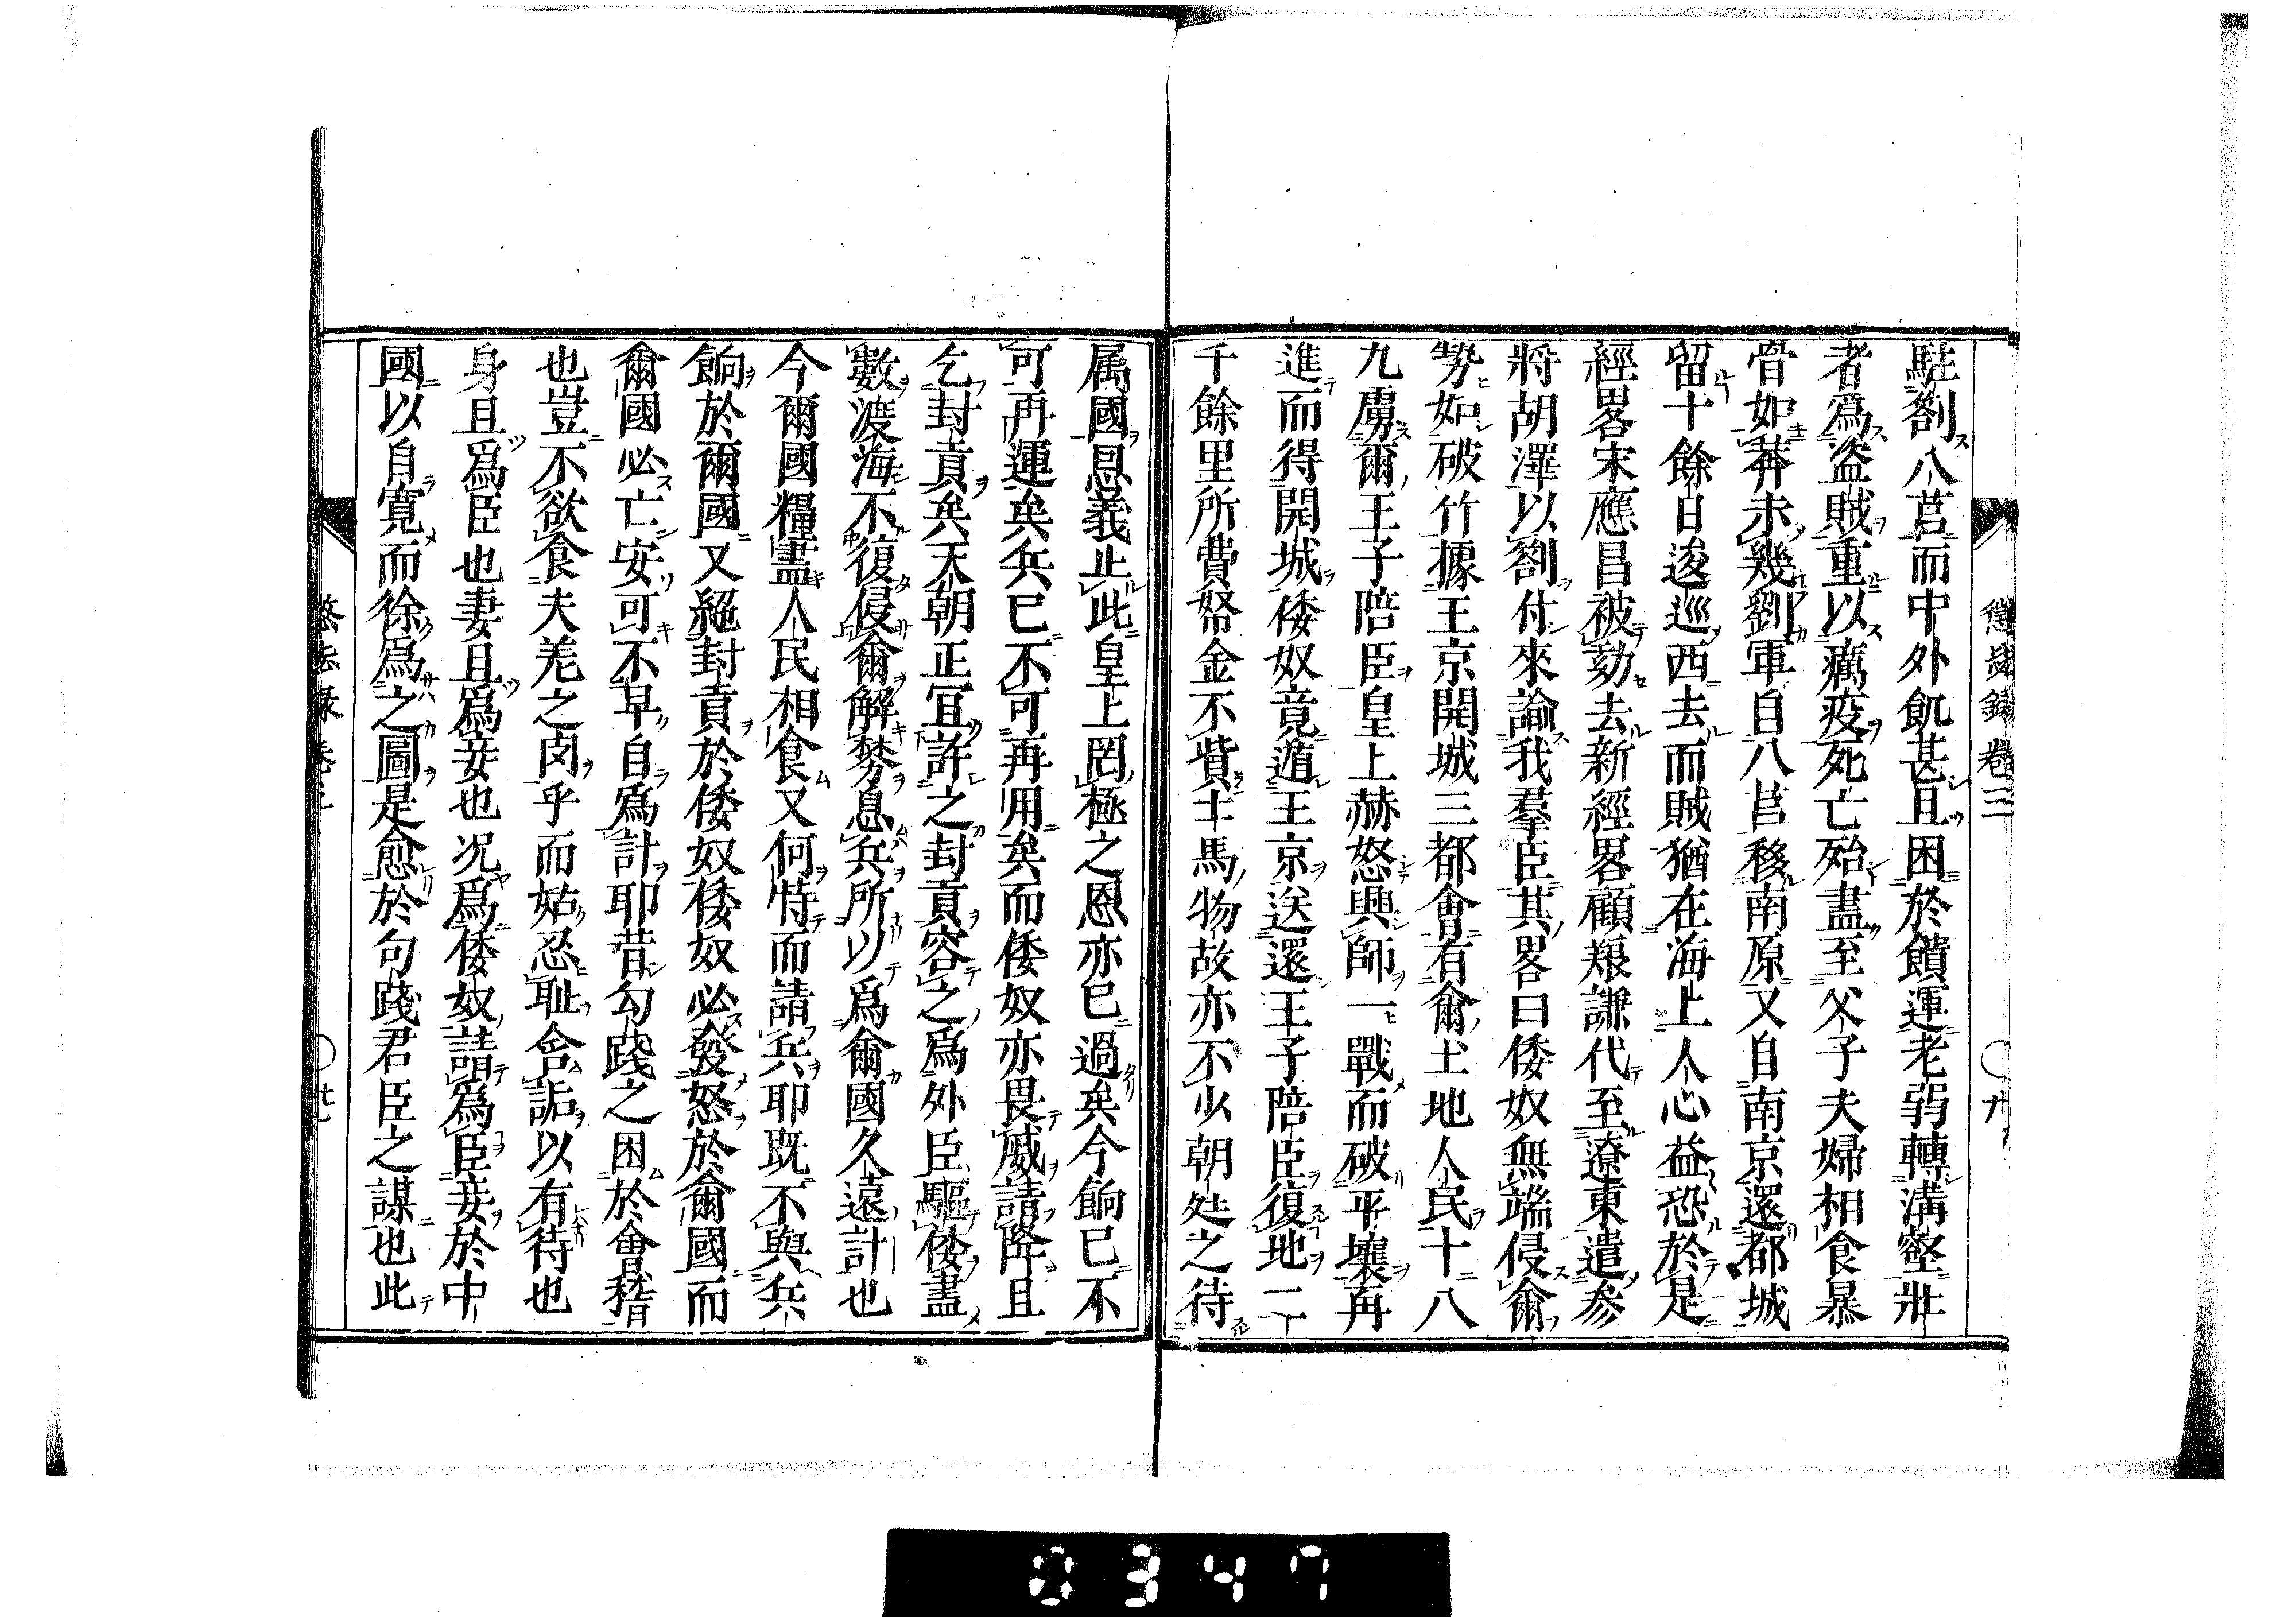 懲毖錄 卷三 ○ 九
駐劄八莒而中外飢甚且困於饋運老弱轉溝壑壯
者爲盜賊重以癘疫死亡殆盡至父子夫婦相食暴
骨如莽未幾劉軍自八莒移南原又自南京還都城
留十餘日逡巡西去而賊猶在海上人心益恐於是
經畧宋應昌被劾去新經畧顧養謙代至遼東遣参
將胡澤以劄付來諭我羣臣其畧曰倭奴無端侵爾
勢如破竹據王京開城三都會有爾土地人民十八
九虜爾王子陪臣皇上赫怒興師一戰而破平壤再
進而得開城倭奴竟遁王京送還王子陪臣復地二
千餘里所費帑金不貲士馬物故亦不少朝廷之待
属國恩義止此皇上罔極之恩亦已過矣今餉已不
可再運矣兵已不可再用矣而倭奴亦畏威請降且
乞封貢矣天朝正宜許之封貢容之爲外臣驅倭盡
數渡海不復侵爾解棼息兵所以爲爾國久遠計也
今爾國糧盡人民相食又何恃而請兵耶既不與兵
餉於爾國又絕封貢於倭奴倭奴必發怒於爾國而
爾國必亡安可不早自爲計耶昔勾踐之困於會稽
也豈不欲食夫羌之肉乎而姑忍耻含詬以有待也
身且爲臣也妻且爲妾也况爲倭奴請爲臣妾於中
國以自寛而徐爲之圖是愈於句踐君臣之謀也此